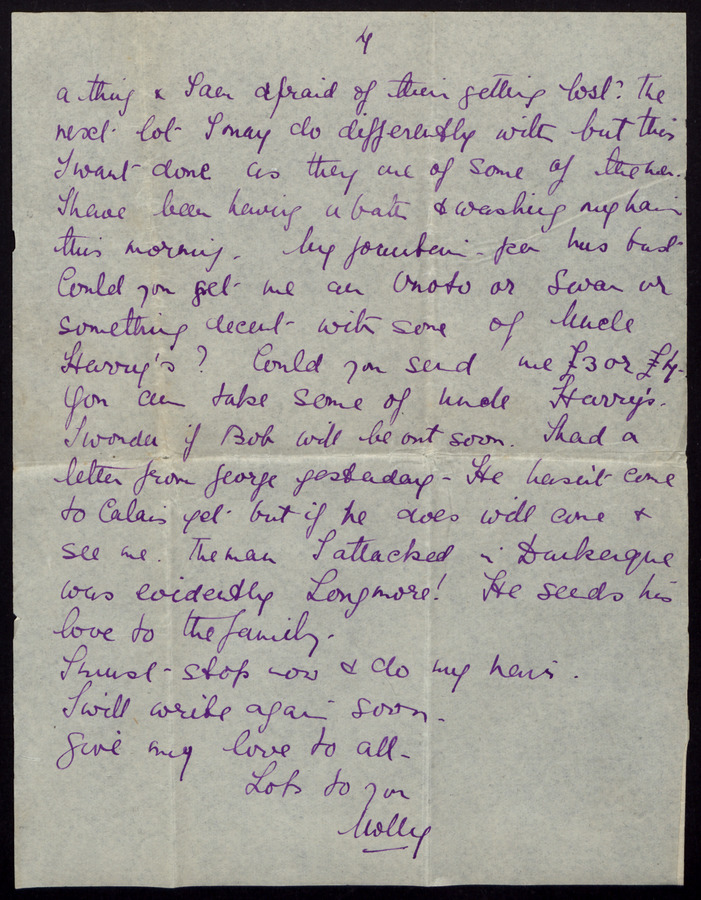 4
a thing & I am afraid of them getting lost? The
next lot I may do differently with but this
I want done as they are of some of the men.
I have been having a bath & washing my hair
this morning. My fountain-pen has bust
Could you get me an Onoto or Swan or
something decent with some of Uncle
Harry's? Could you send me £3 or £4.
You can take some of uncle Harry's.
I wonder if Bob will be out soon. I had a
letter from George yesterday - He hasn't come
to Calais yet but if he does will come &
see me. The man I attacked in Dunkerque
was evidently Longmore! He sends his
love to the family.
I must stop now & do my hair.
I will write again soon.
Give my love to all -
Lots to you
Molly